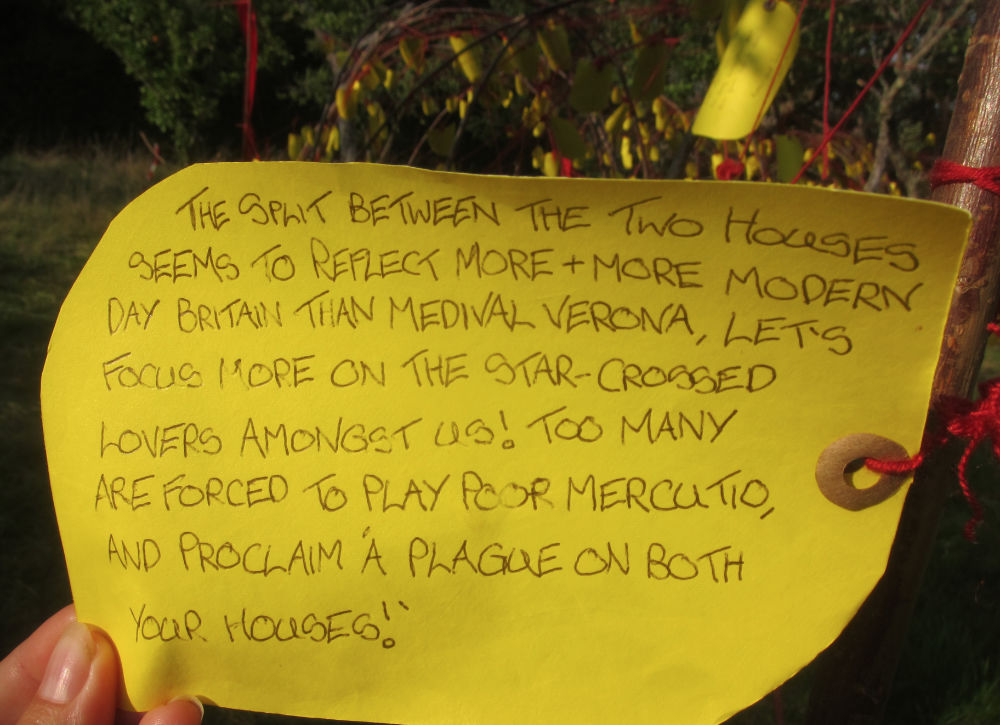 THE SPLIT BETWEEN THE TWO HOUSES
SEEMS TO REFLECT MORE + MORE MODERN
DAY BRITAIN THAN MEDIVAL VERONA, LET'S
FOCUS MORE ON THE STAR-CROSSED
LOVERS AMONGST US! TOO MANY
ARE FORCED TO PLAY POOR MERCUTIO,
AND PROCLAIM "A PLAGUE ON BOTH
YOUR HOUSES!"